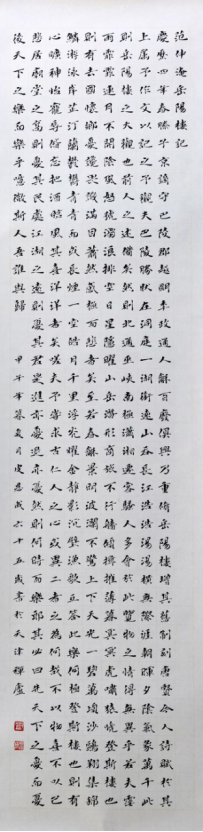 范仲淹岳陽樓記
慶曆四年春滕子京謫守巴陵郡越明年政通人龢百廢具興乃重修岳陽樓增其舊制刻唐賢今人詩賦於其
上屬予作文以記之予觀夫巴陵勝狀在洞庭一湖銜遠山吞長江浩浩湯湯橫無際涯朝暉夕陰氣象萬千此
則岳陽樓之大觀也前人之述備矣然則北通巫峽南極瀟湘遷客騷人多會於此覽物之情得無異乎若夫霪
雨霏霏連月不開陰風怒號濁浪排空日星隱曜山岳潛形商旅不行檣傾楫摧薄暮冥冥虎嘯猿啼登斯樓也
則有去國懷鄉憂讒畏譏滿目蕭然感極而悲者矣至若春龢景明波瀾不驚上下天光一碧萬頃沙鷗翔集錦
鱗游泳岸芷汀蘭鬱鬱青青而或長煙一空皓月千里浮光耀金靜影沉璧漁歌互答此樂何極登斯樓也則有
心曠神怡寵辱皆忘把酒臨風其喜洋洋者矣嗟夫予嘗求古仁人之心或異二者之為何哉不以物喜不以己
悲居廟堂之高則憂其民處江湖之遠則憂其君是進亦憂退亦憂然則何時而樂耶其必曰先天下之憂而憂
後天下之樂而樂乎噫微斯人吾誰與歸
甲午年月皮志成六十五歲書於天津禪廬